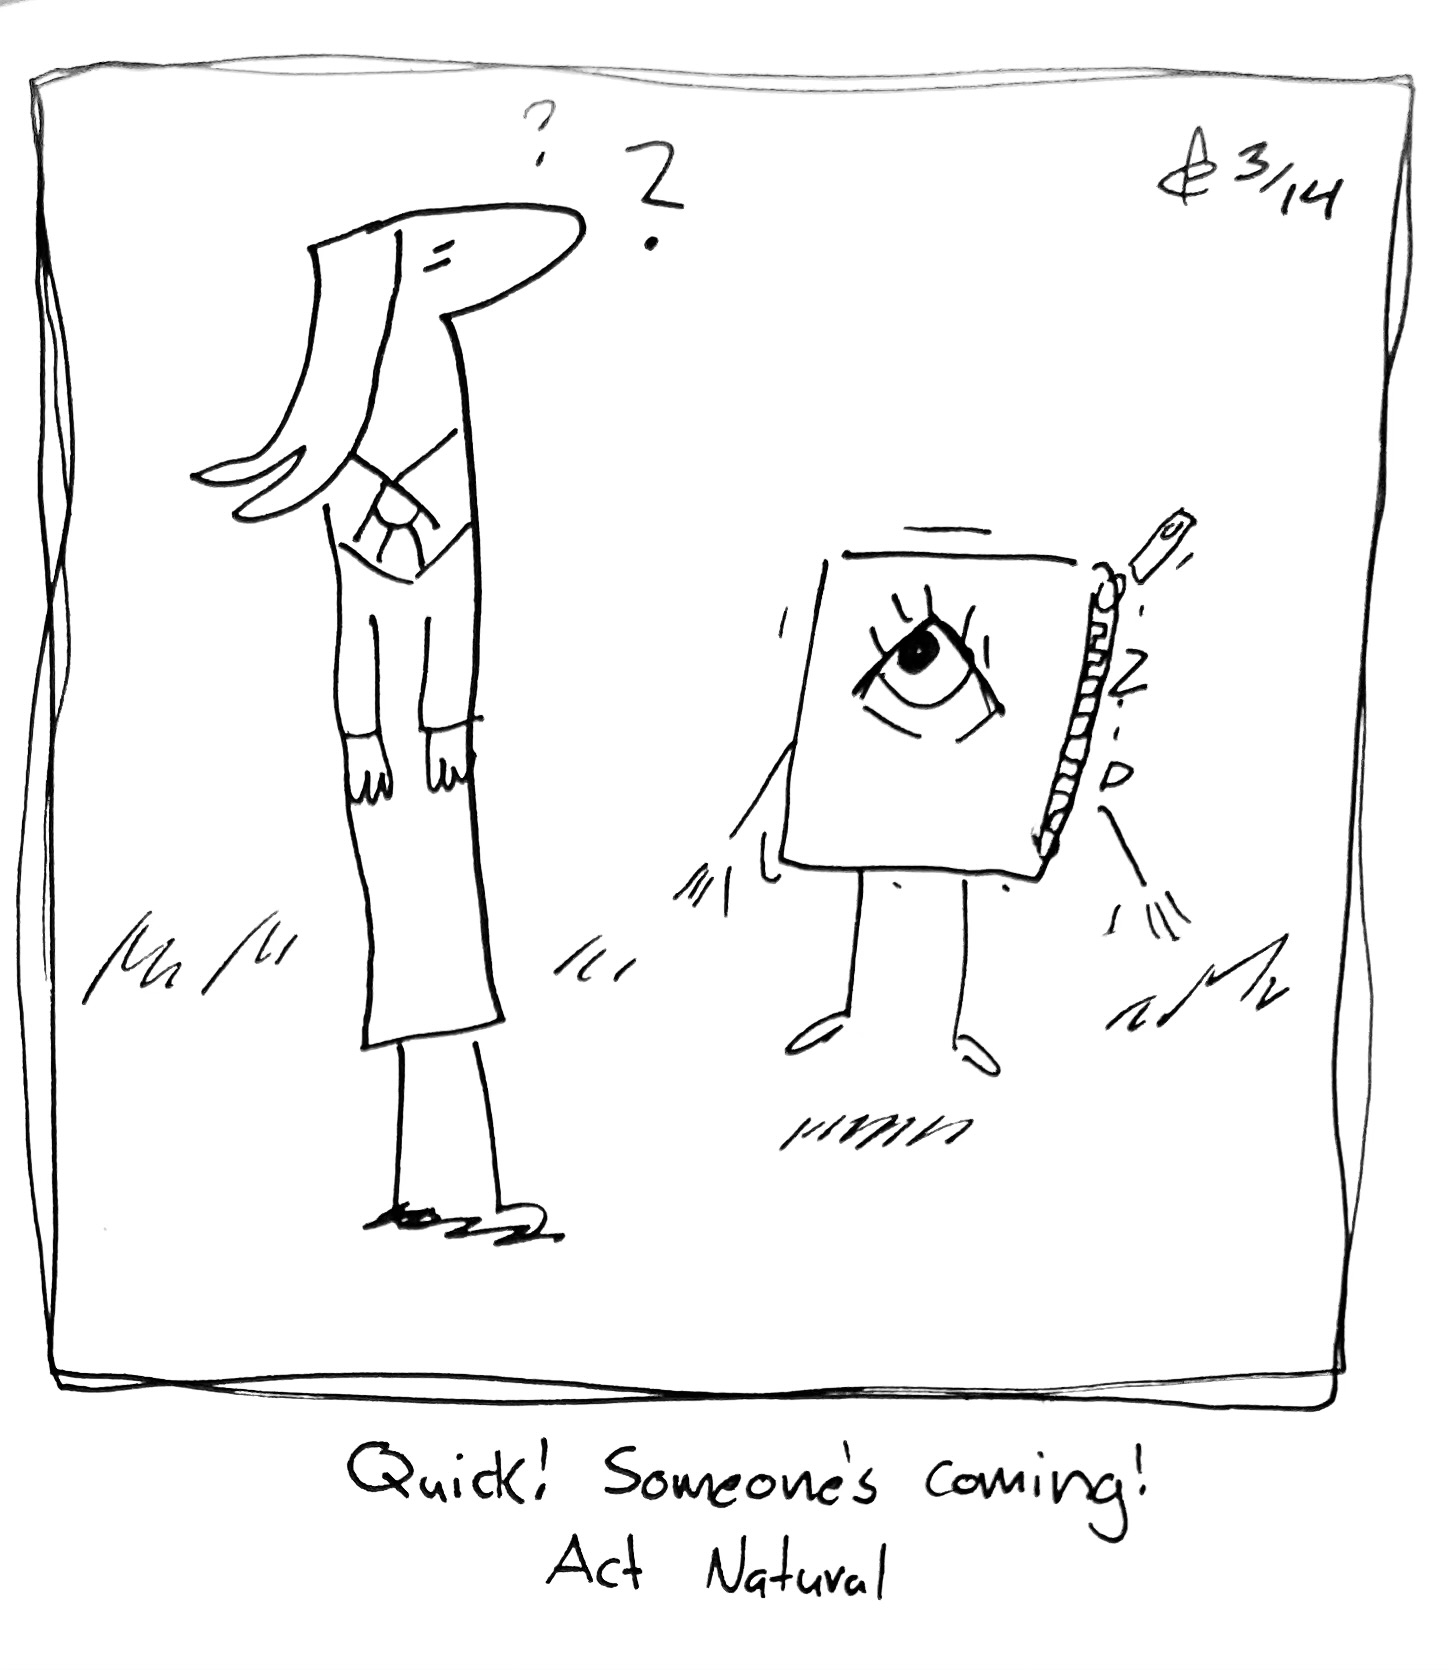 ? ?
3/14
Z
I
P
Quick! Someone's coming!
Act Natural